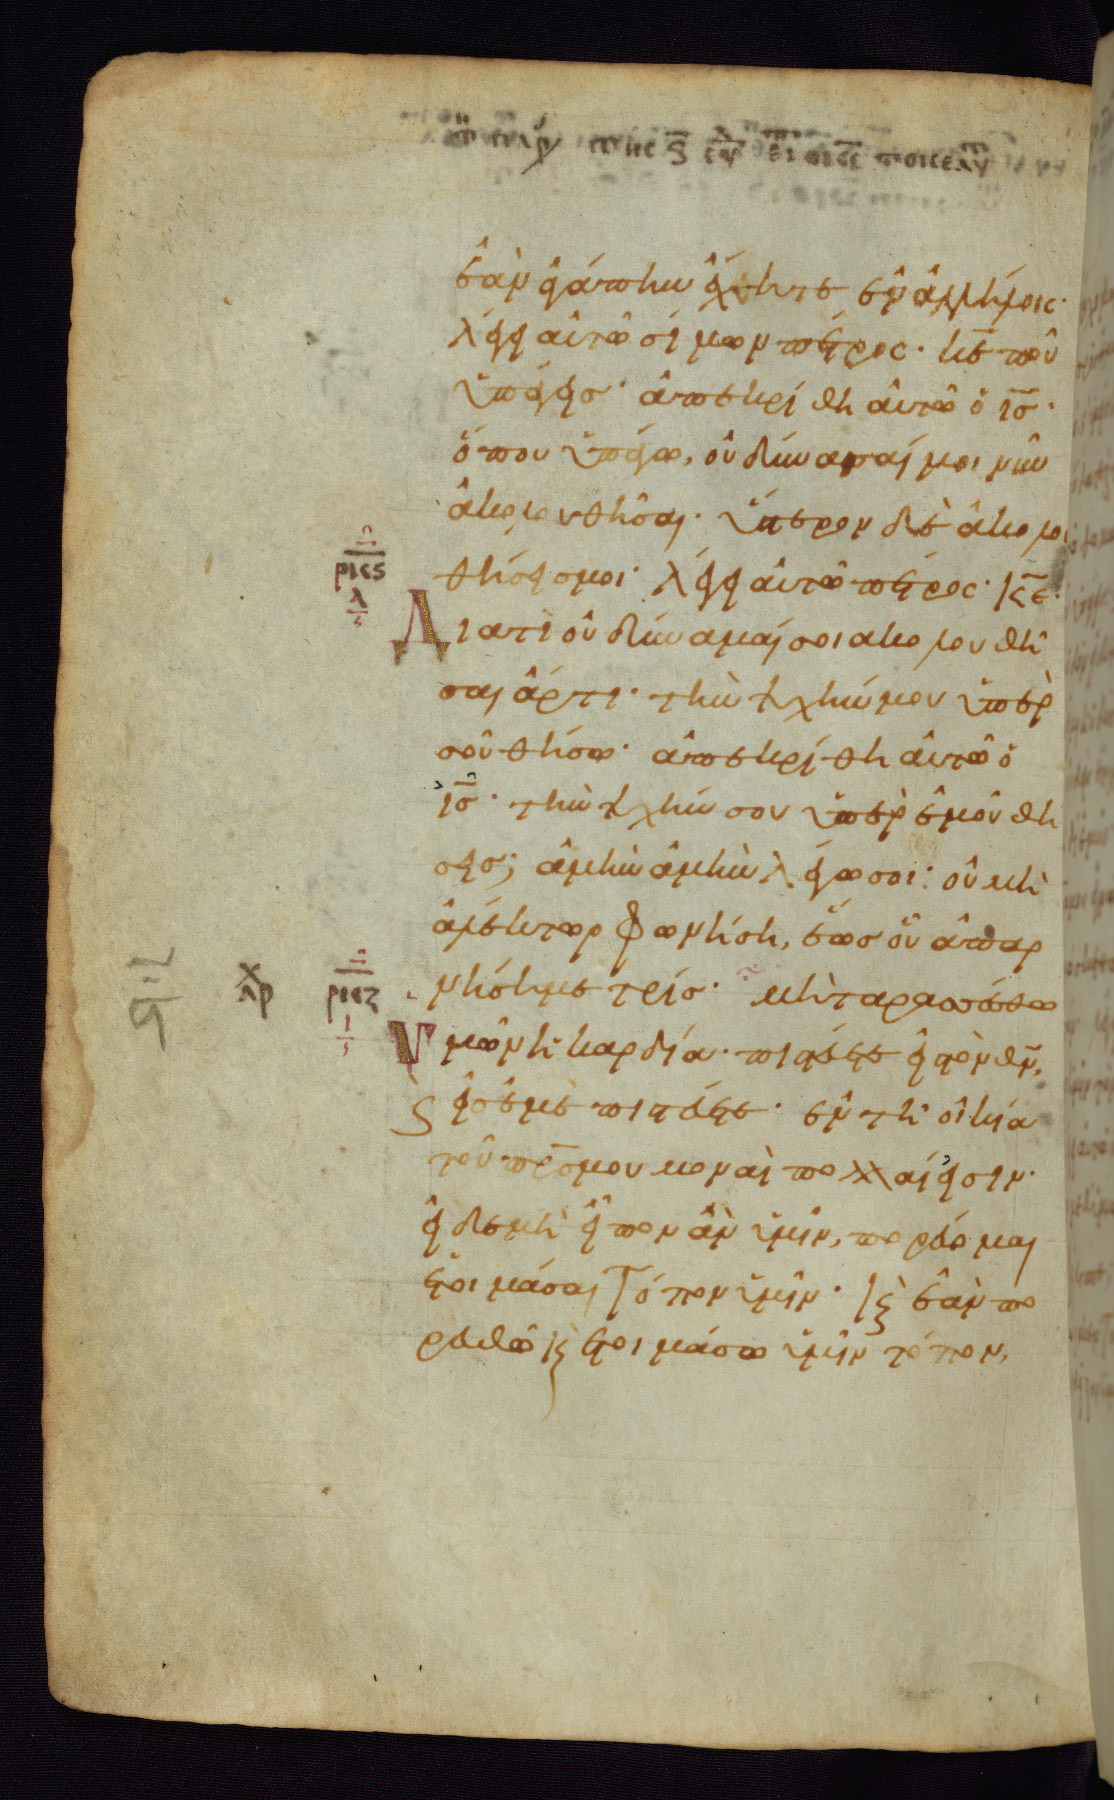 ἐὰν ἀγάπην ἔχητε ἐν ἀλλήλοις·
λέγει αὐτῶ σίμων πέτρος· κε̅ ποῦ
ὑπάγεισ· ἀπεκρίθη αὐτῶ ὁ ισ̅·
ὅπου ὑπάγω, οὐ δύνασαί μοι νῦν
ἀκολουθῆσαι· ὕστερον δὲ ἀκολου
θήσεισ μοι· λέγει αὐτῶ πέτρος· κε̅·
Διατί οὐ δύναμαί σοι ακολουθῆ
σαι ἄρτι· τὴν ψυχήν μου ὑπὲρ
σοῦ θήσω· ἀπεκρίθη αὐτῶ ὁ
ισ̅· τὴν ψυχήν σου ὑπὲρ ἐμοῦ θή
σεισ; ἀμὴν ἀμὴν λέγω σοι· οὐ μὴ
ἀλέκτωρ φωνήση, ἕωσ οὗ ἀπαρ
νήση με τρίσ· μὴ ταρασσέσθω
ριϛ
ριζ
αρ
Ὑμῶν ἡ καρδία· πιστεύετε εἰς τὸν θν̅,
ϗ εἰσ ἐμὲ πιστεύετε· ἐν τῆ οἰκία
τοῦ πρσ̅ μου μοναὶ πολλαί εἰσιν·
εἰ δὲ μὴ εἶπον ἂν ὑμῖν, πορεύομαι
ἑτοιμάσαι τόπον ὑμῖν· ϗ ἐὰν πο
ρευθῶ ϗ ἑτοιμάσω ὑμῖν τόπον,